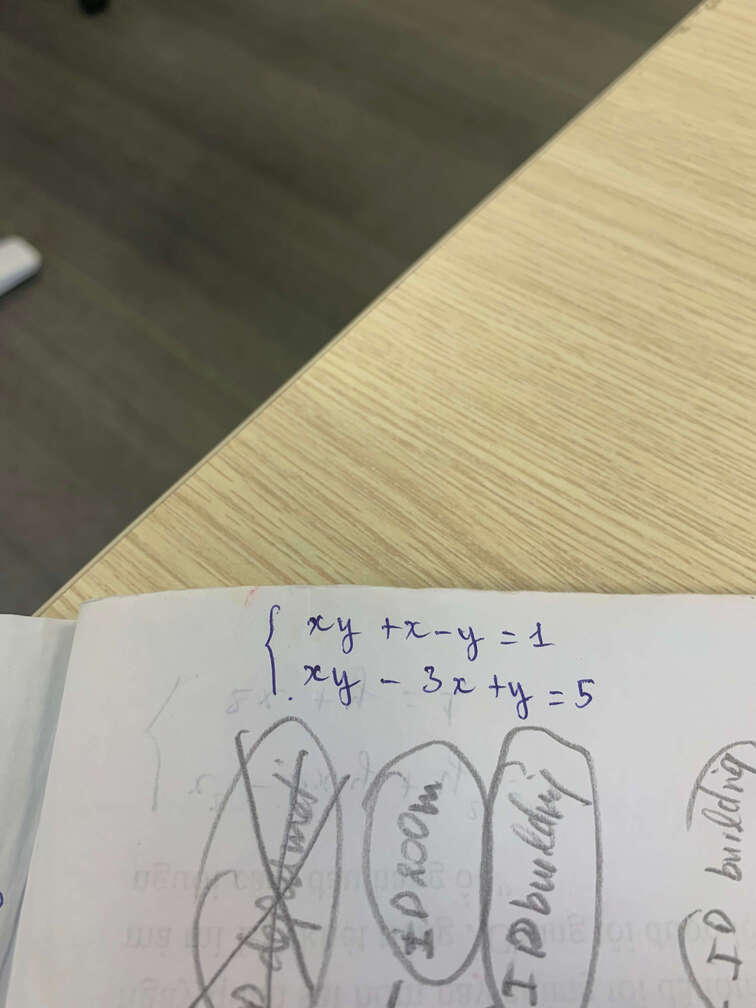 xy + x - y = 1
xy - 3x + y = 5
ID room
ID building
ID building